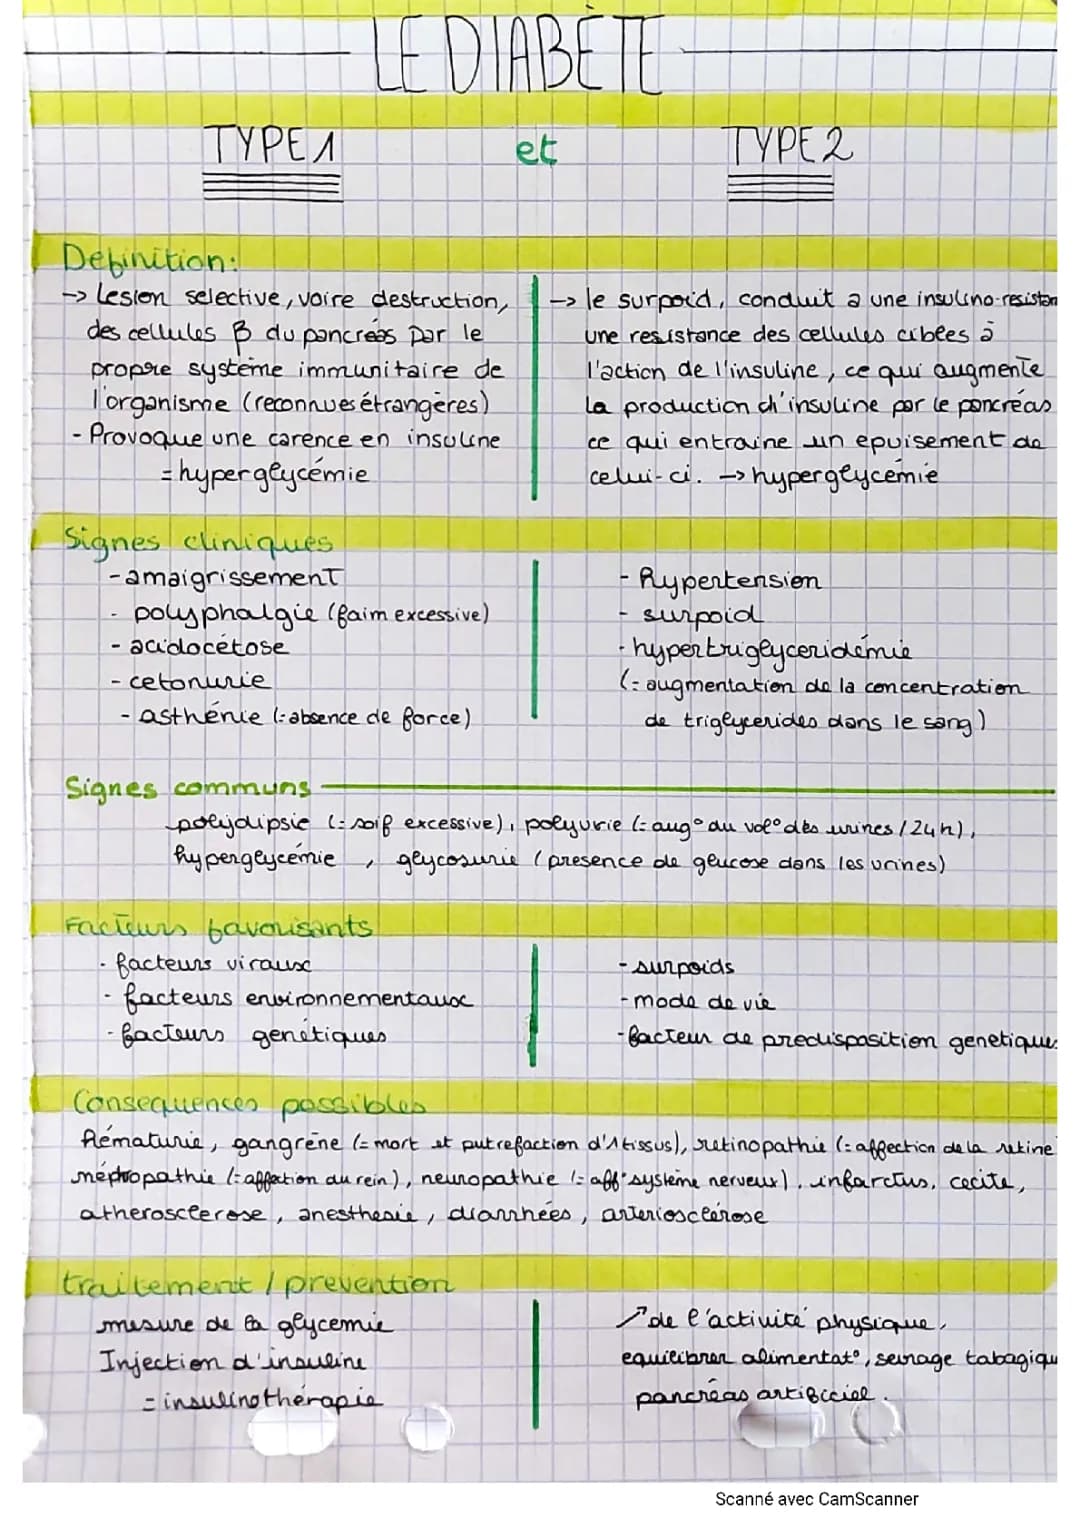 LE DIABÈTE
TYPE 1 et TYPE 2
Definition:
-> Lesion selective, voire destruction,
des cellules β du pancréas par le
propre système immunitaire de
l'organisme (reconnues étrangères)
- Provoque une carence en insuline
= hyperglycémie
-> le surpoid, conduit a une insulino-resistan
une resistance des cellules cibées à
l'action de l'insuline, ce qui augmente
la production d'insuline par le pancréas
ce qui entraine un epuisement de
celui-ci. -> hyperglycémie
Signes cliniques
- amaigrissement
- polyphalgie (faim excessive)
- acidocétose
- cetonurie
- asthénie (= absence de force)
- Hypertension
- surpoid
- hypertriglyceridémie
(= augmentation de la concentration
de triglycerides dans le sang)
Signes communs
polydipsie (= soif excessive), polyurie (= aug° du vol° des urines / 24h),
hyperglycémie, glycosurie (presence de glucose dans les urines)
Facteurs favorisants
- facteurs viraux
- facteurs environnementaux
- facteurs genétiques
- surpoids
- mode de vie
- facteur de predisposition genetique.
Consequences possibles
Hématurie, gangrène (= mort et putrefaction d'1 tissus), retinopathie (= affection de la retine
néphropathie (= affection du rein), neuropathie (= aff° système nerveux), infarctus, cecite,
atherosclerose, anesthesie, diarrhées, arteriosclérose
traitement / prevention
mesure de la glycemie
Injection d'insuline
= insulinothérapie
↗ de l'activité physique,
equilibrer alimentat°, sevrage tabagiqu
pancréas artificiel.
Scanné avec CamScanner